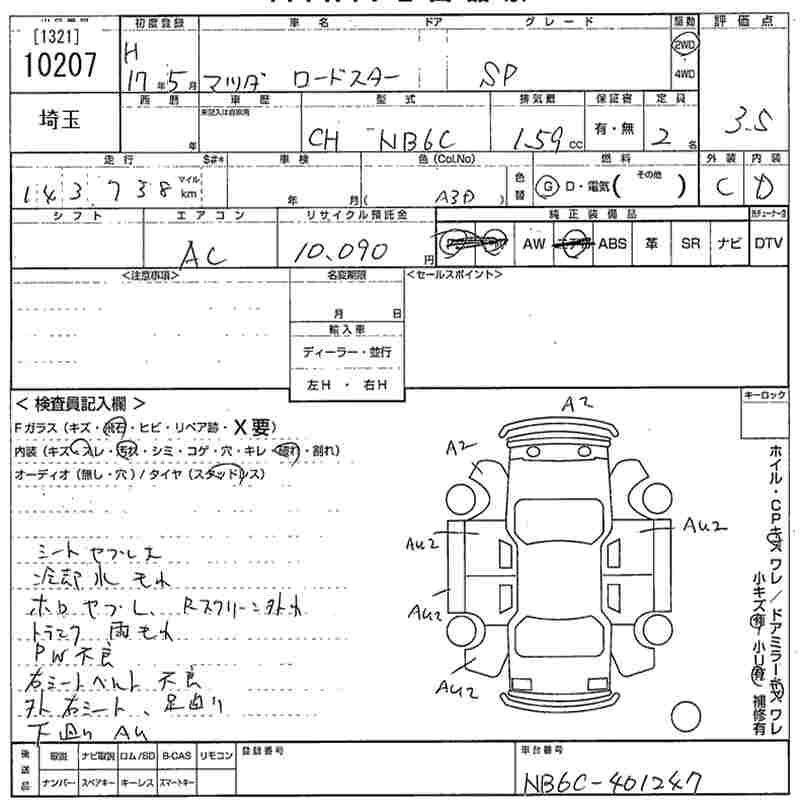 [1321]
10207
初度登録 車名 ドア グレード 駆動 評価点
H 17年5月 マツダ ロードスター SP 2WD 4WD 3.5
埼玉
西暦 車歴 型式 排気量 保証書 定員
未記入は自家用
年 CH NB6C 1.59 cc 有・無 2名
走行 S#* 車検 色(Col.No) 燃料 外装 内装
143,738 マイル km 年 月 ( A3P ) 色替 G D・電気( その他 ) C D
シフト エアコン リサイクル預託金 純正装備品
AC 10.090円 AW ABS 革 SR ナビ DTV
<注意事項> 名変期限 <セールスポイント>
月 日
輸入車
ディーラー・並行
左H・右H
<検査員記入欄> キーロック
Fガラス(キズ・飛石・ヒビ・リペア跡・X要)
内装(キズ・スレ・汚れ・シミ・コゲ・穴・キレ・破れ・割れ)
オーディオ(無し・穴)/タイヤ(スタッドレス)
シートヤブレ大
冷却水モレ
ホロヤブレ、Rスクリーン外れ
トランク雨モレ
PW不良
右シートベルト不良
外右シート、足廻り
下廻りAU
A2
A2
AU2
AU2
AU2
AU2
ホイル・CPキズワレ/ドアミラーキズワレ
小キズ有 小U有 補修有
後送品 取説 ナビ取説 ロム/SD B-CAS リモコン 登録番号 車台番号
ナンバー スペアキー キーレス スマートキー NB6C-401247